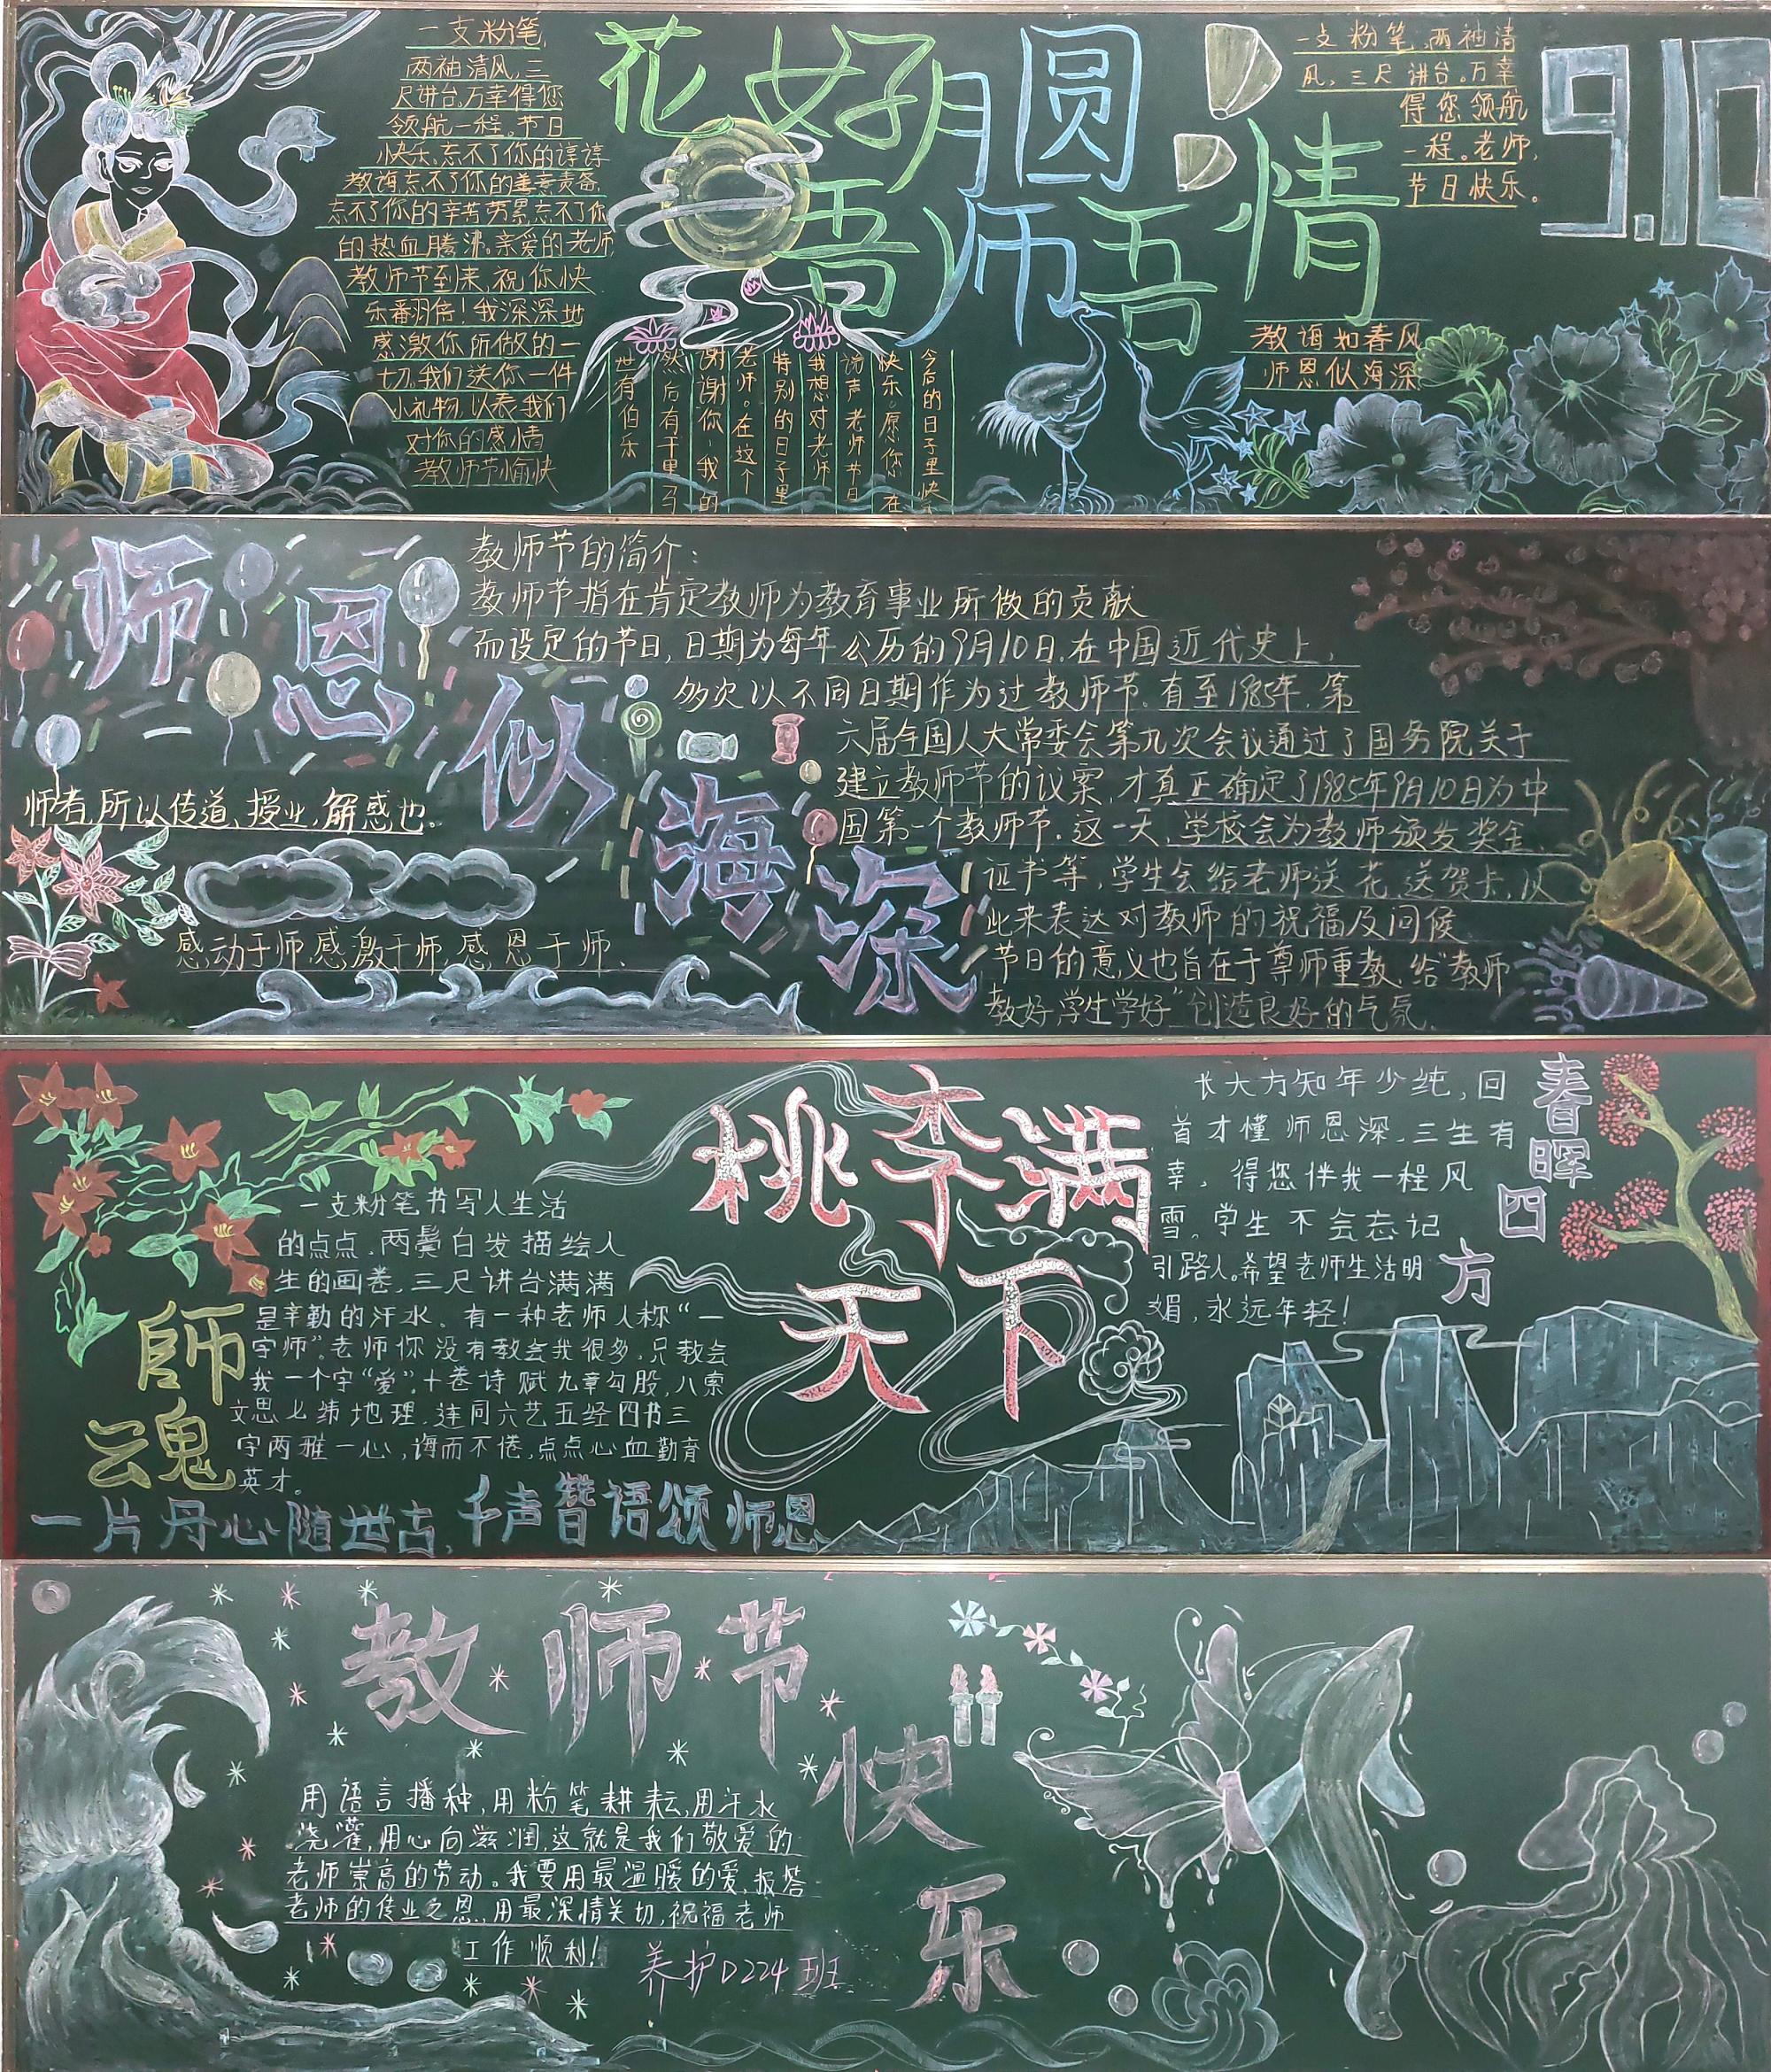 一支粉笔,
两袖清风,三
尺讲台。万幸得您
领航一程。节日
快乐,忘不了你的谆谆
教诲,忘不了你的善意责备,
忘不了你的辛苦劳累,忘不了你
的热血腾沸。亲爱的老师,
教师节到来,祝你快
乐翻倍!我深深地
感激你所做的一
切。我们送你一件
小礼物,以表我们
对你的感情
教师节愉快
花好月圆
吾师吾情
今后的日子里快
快乐。愿你在
说声老师节日
我想对老师
特别的日子里
老师。在这个
谢谢你,我的
然后有千里马
世有伯乐
一支粉笔,两袖清
风,三尺讲台。万幸
得您领航
一程。老师,
节日快乐。
9.10
教诲如春风
师恩似海深
师恩似海深
师者,所以传道、授业,解惑也。
感动于师,感激于师,感恩于师、
教师节的简介:
教师节指在肯定教师为教育事业所做的贡献
而设定的节日,日期为每年公历的9月10日.在中国近代史上,
多次以不同日期作为过教师节.直至1985年,第
六届全国人大常委会第九次会议通过了国务院关于
建立教师节的议案,才真正确定了1985年9月10日为中
国第一个教师节.这一天,学校会为教师颁发奖金、
证书等,学生会给老师送花,送贺卡,以
此来表达对教师的祝福及问候
节日的意义也旨在于尊师重教,给“教师
教好,学生学好”创造良好的气氛.
桃李满
天下
一支粉笔书写人生活
的点点,两鬓白发描绘人
生的画卷,三尺讲台满满
是辛勤的汗水、有一种老师人称“一
字师”。老师你没有教会我很多,只教会
我一个字“爱”。十卷诗赋九章勾股,八索
文思七纬地理,连同六艺五经四书三
字两雅一心,诲而不倦,点点心血勤育
英才。
師
云魂
一片丹心随世古,千声皆语颂师恩
长大方知年少纯,回
首才懂师恩深,三生有
幸,得您伴我一程风
雪。学生不会忘记
引路人。希望老师生活明
媚,永远年轻!
春晖四方
教师节
快乐
用语言播种,用粉笔耕耘,用汗水
浇灌,用心向滋润,这就是我们敬爱的
老师崇高的劳动。我要用最温暖的爱,报答
老师的传业之恩,用最深情关切,祝福老师
工作顺利!
养护D224班